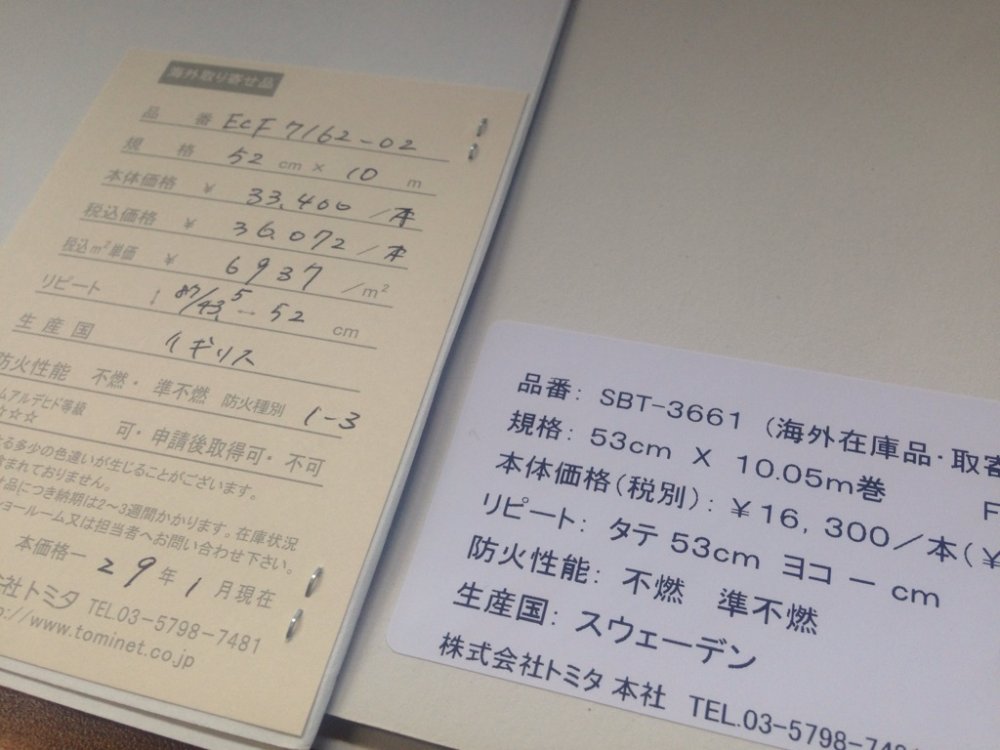 海外取り寄せ品
品 番 EcF 7162-02
規 格 52 cm × 10 m
本体価格 ¥ 33,400 /本
税込価格 ¥ 36,072 /本
税込m²単価 ¥ 6937 /m²
リピート ↕ 87/43.5 ↔ 52 cm
生産国 イギリス
防火性能 不燃・準不燃 防火種別 1-3
ムアルデヒド等級
☆☆ 可・申請後取得可・不可
る多少の色違いが生じることがございます。
含まれておりません。
品につき納期は2〜3週間かかります。在庫状況
ョールーム又は担当者へお問い合わせ下さい。
本価格ー 29年1月現在
会社トミタ TEL.03-5798-7481
://www.tominet.co.jp
品番: SBT-3661 (海外在庫品・取寄
規格: 53cm X 10.05m巻 F
本体価格(税別): ¥16,300/本(¥
リピート: タテ 53cm ヨコ ー cm
防火性能: 不燃 準不燃
生産国: スウェーデン
株式会社トミタ 本社 TEL.03-5798-74